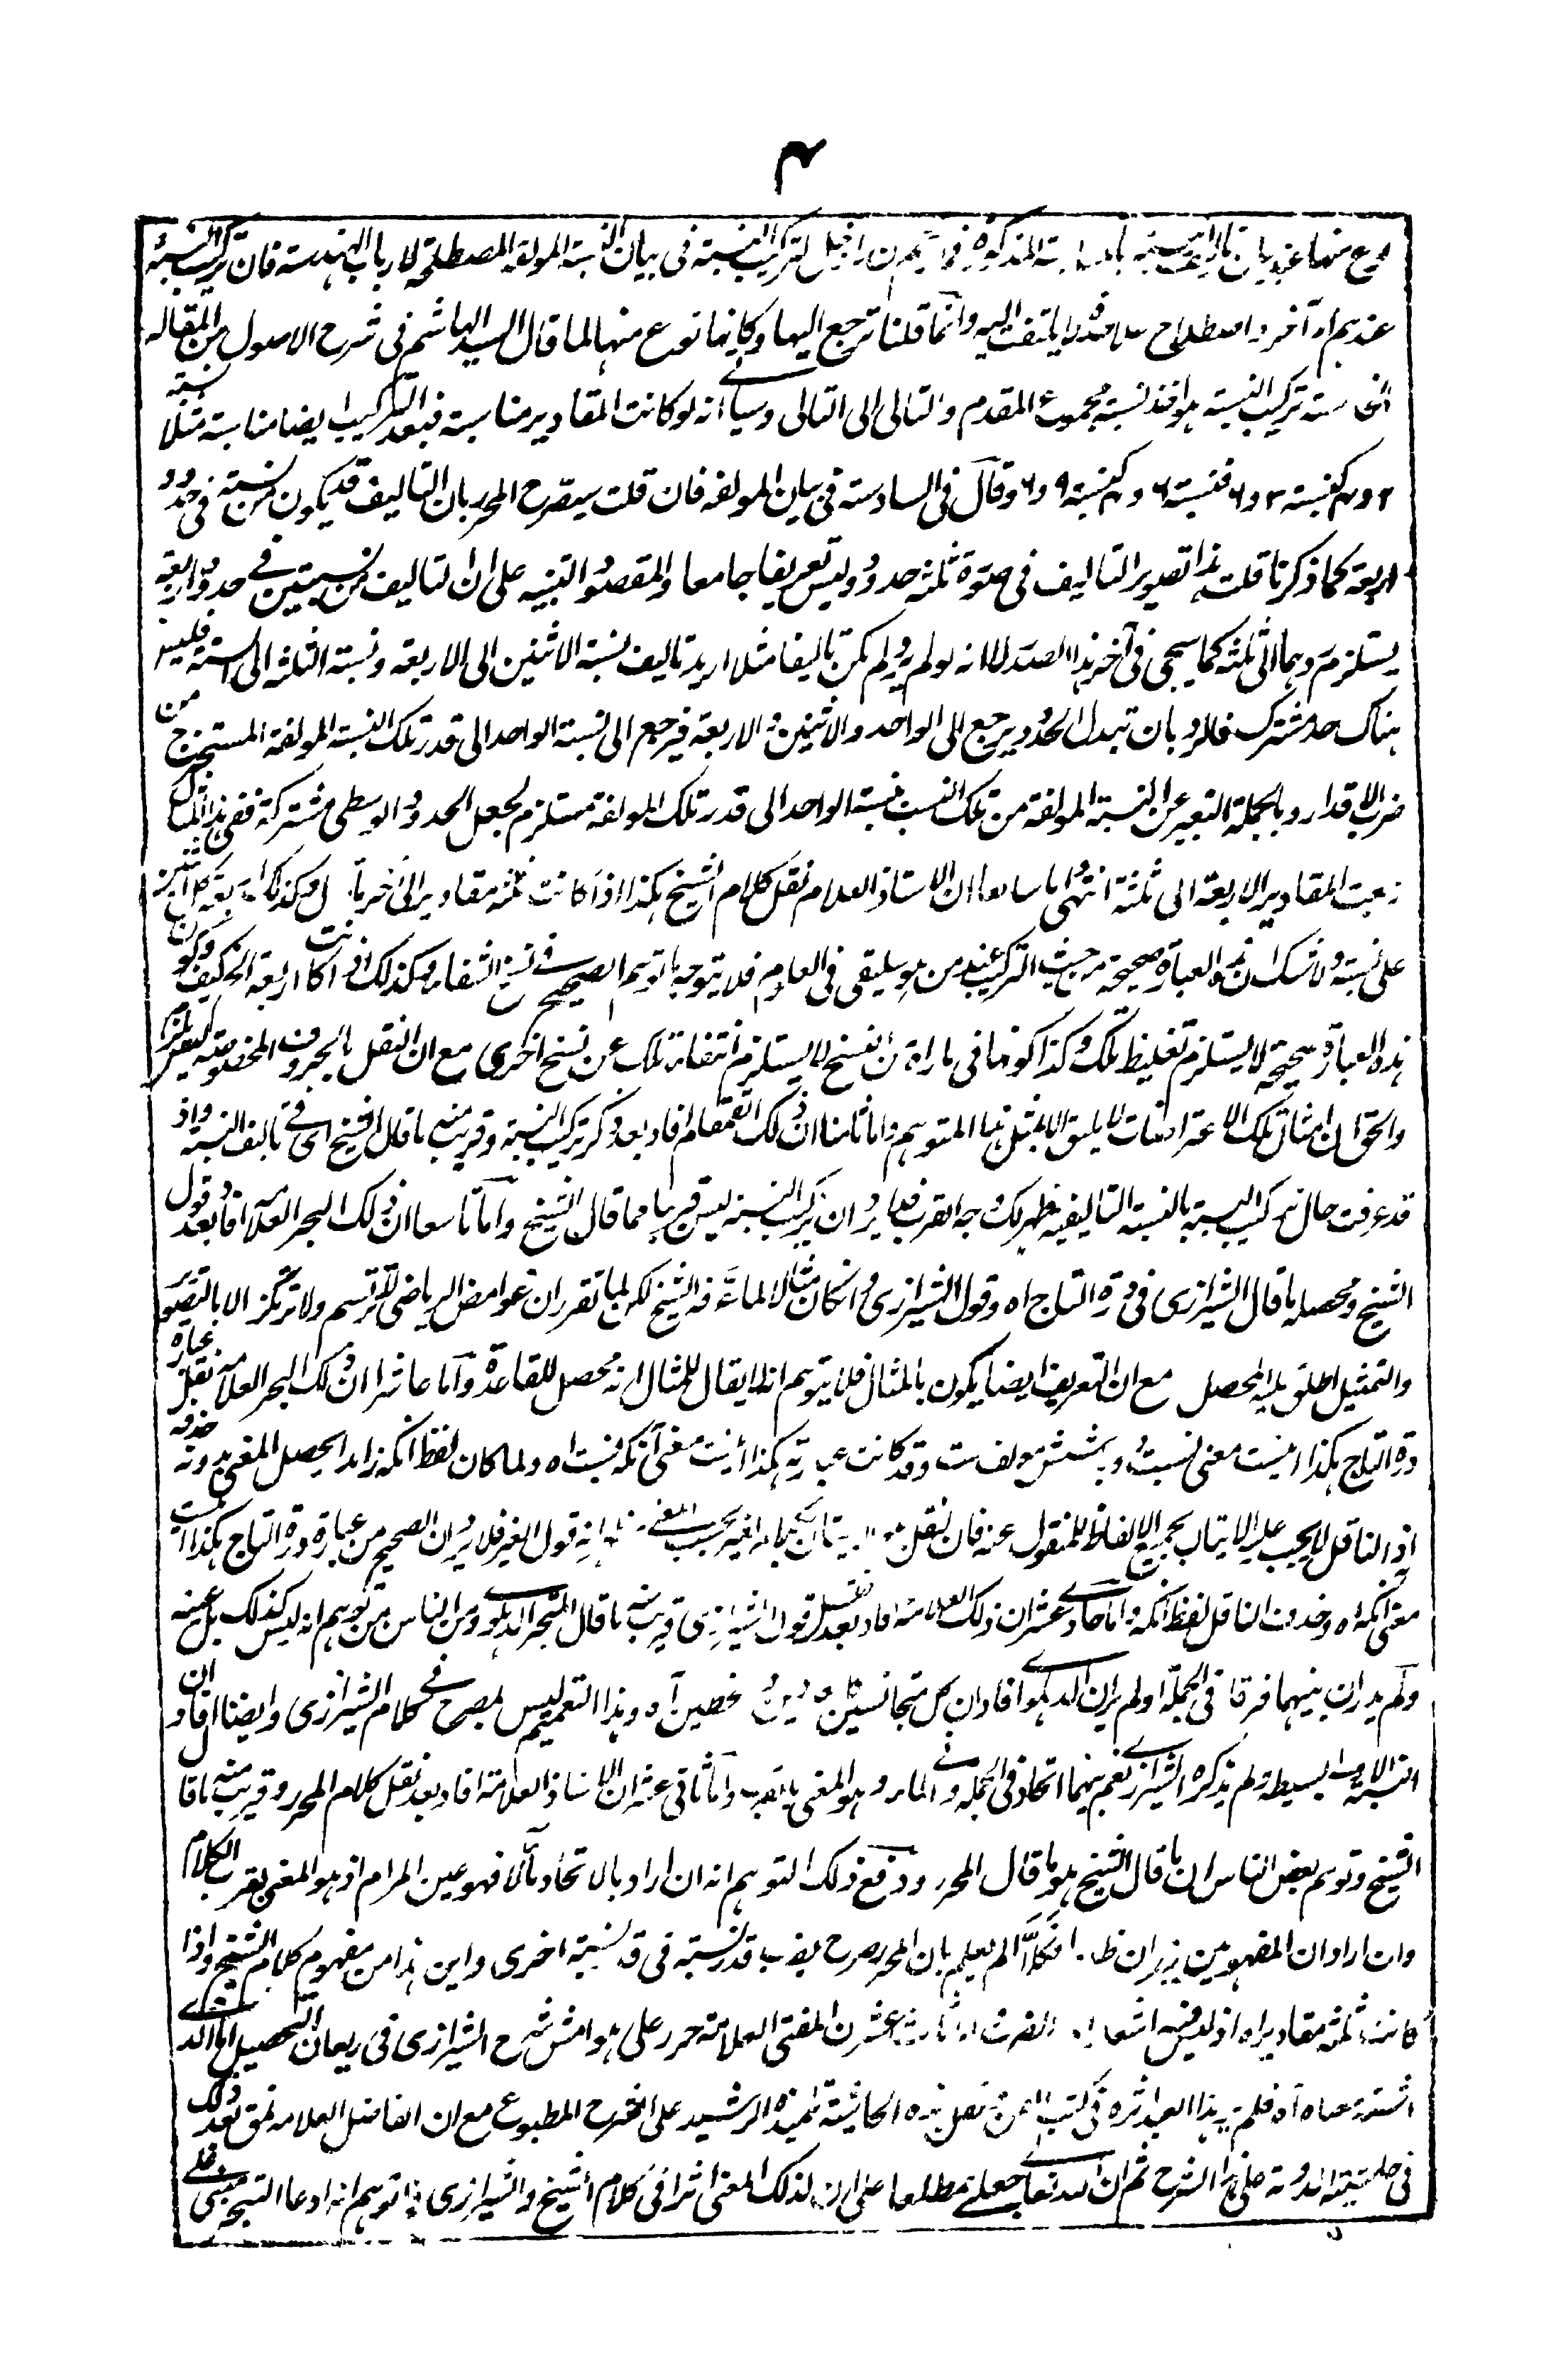 ۴
نوع منها عند بيان في بيان النسبة المولفة المصطلحة لارباب الهندسة فان تركيب النسبة
عندهم امر آخر ولا يلتفت اليه وانما قلنا ترجع اليها وكانها نوع منها لما قال السيد الهاشم في شرح الاصول من المقالة
الخامسة تركيب النسبة هو اخذ نسبة مجموع المقدم والتالى الى التالى وسياتى انه لو كانت المقادير متناسبة فبعد التركيب ايضا متناسبة مثلا نسبة
۲ و ۴ كنسبة ۳ و ۶ فنسبة ۶ و ۴ كنسبة ۹ و ۶ وقال في السادسة في بيان المولفة فان قلت سيصرح المحرر بان التاليف قد يكون من نسبة في حدود
اربعة كما ذكرنا قلت هذا تصوير التاليف في صورة ثلثة حدود وليس تعريفا جامعا والمقصود التنبيه على ان التاليف من نسبتين في حدود اربعة
يستلزم ردهما الى ثلثة كما سيجى في آخر هذا الصدر لانه لو لم يرد لم يكن تاليفا مثلا اريد تاليف نسبة الاثنين الى الاربعة ونسبة الثلثة الى الستة فليس
هناك حد مشترك فالرد بان تبدل الحدود يرجع الى الواحد والاثنين و الاربعة فيرجع الى نسبة الواحد الى قدر تلك النسبة المولفة المستخرج من
ضرب الاقدار وبالجملة التعبير عن النسبة المولفة من تلك النسب بنسبة الواحد الى قدر تلك المولفة مستلزم لجعل الحدود الوسطى مشتركة ففى هذا المثال
رجعت المقادير الاربعة الى ثلثة انتهى واما سابعا ان الاستاذ العلام نقل كلام الشيخ هكذا اذا كانت ثلثة مقادير الى آخر ما قال وكذلك اربعة كل اثنين
على نسبة ولا شك ان هذه العبارة صحيحة من حيث التركيب عند من هو سليقى في العلوم فلا يتوجه ما توهم الصحيح في نسخ الشفاء وكذلك اذا كانت اربعة الخ كيف وكون
هذه العبارة صحيحة لا يستلزم تغليط تلك وكذا كونها في ما راه من النسخ لا يستلزم انتفاء تلك عن نسخ اخرى مع ان النقل بالحروف المخصوصة ليس بلازم
والحق ان امثال تلك الاعتراضات لا يليق الا بمثل هذا المتوهم واما ثامنا ان ذلك القمقام افاد بعد ذكر تركيب النسبة وقريب منه ما قال الشيخ اى في تاليف النسبة واذ
قد عرفت حال تركيب النسبة بالنسبة التاليفية ظهر لك وجه القرب فلا يرد ان تركيب النسبة ليس قريبا مما قال الشيخ واما تاسعا ان ذلك البحر العلامة افاد بعد قول
الشيخ ومحصله ما قال الشيرازى في درة التاج اه وقول الشيرازى وان كان مثالا لما عرفه الشيخ لكن لما تقرر ان غوامض الرياضى لا ترتسم ولا ترتكز الا بالتصوير
والتمثيل اطلق عليه المحصل مع ان التعريف ايضا يكون بالمثال فلا يتوهم انه لا يقال للمثال انه محصل للقاعدة واما عاشرا ان ذلك البحر العلامة نقل عبارة
درة التاج هكذا اينست معنى نسبت وقد كانت عبارته هكذا اينست معنى آنكه نسبت اه ولما كان لفظ آنكه زايدا يحصل المعنى بدونه حذفه
اذ الناقل لا يجب عليه الاتيان بجميع الالفاظ للمنقول عنه فان النقل بحسب المعنى انه قول الغير فلا يرد ان الصحيح من عبارة درة التاج هكذا اينست
معنى آنكه اه وحذف الناقل لفظ آنكه واما حادى عشر ان ذلك العلامة افاد بعد نقل قول الشيرازى قريب منه ما قال المتبحر الدهلوى ومن الناس من توهم انه ليس كذلك بل عينه
ولم يدر ان بينهما فرقا في الجملة اولم ير ان الدهلوى افاد ان كل متجانسين آه وهذا التعميم ليس بمصرح في كلام الشيرازى وايضا افاد ان
النسبة الاولى بسيطة ولم يذكره الشيرازى نعم بينهما اتحاد في الجملة وهو المعنى بالقرب واما ثانى عشر ان الاستاذ العلامة افاد بعد نقل كلام المحرر وقريب منه ما قال
الشيخ وتوهم بعض الناس ان ما قال الشيخ هو ما قال المحرر ودفع ذلك التوهم انه ان اراد بالاتحاد مآلا فهو عين المرام اذ هو المعنى بقرب الكلام
وان اراد ان المفهومين فكلا الم يعلم بان المحرر صرح بضرب قدر نسبة في قدر نسبة اخرى واين هذا من مفهوم كلام الشيخ واذا
كانت ثلثة مقادير اه اذ ليس فيه اشعار الضرب واما ثالث عشر ان المفتى العلامة حرر على هوامش شرح الشيرازى في ريعان التحصيل
آه فلم هذا العبد في كتب نقل هذه الحاشية تلميذه الرشيد على الشرح المطبوع مع ان الفاضل العلامة نمق بعد ذلك
في حاشيته على هذا الشرح ثم ان الله تعالى جعلنى مطلعا على ان لذلك المعنى اثرا في كلام الشيخ والشيرازى توهم انه ادعاء التبحر